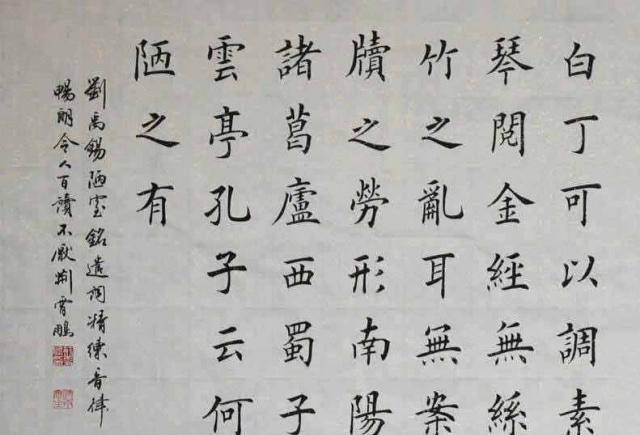 白丁可以調素
琴閱金經無絲
竹之亂耳無案
牘之勞形南陽
諸葛廬西蜀子
雲亭孔子云何
陋之有
劉禹錫陋室銘遣詞精練音律
暢朗令人百讀不厭荆霄鵬